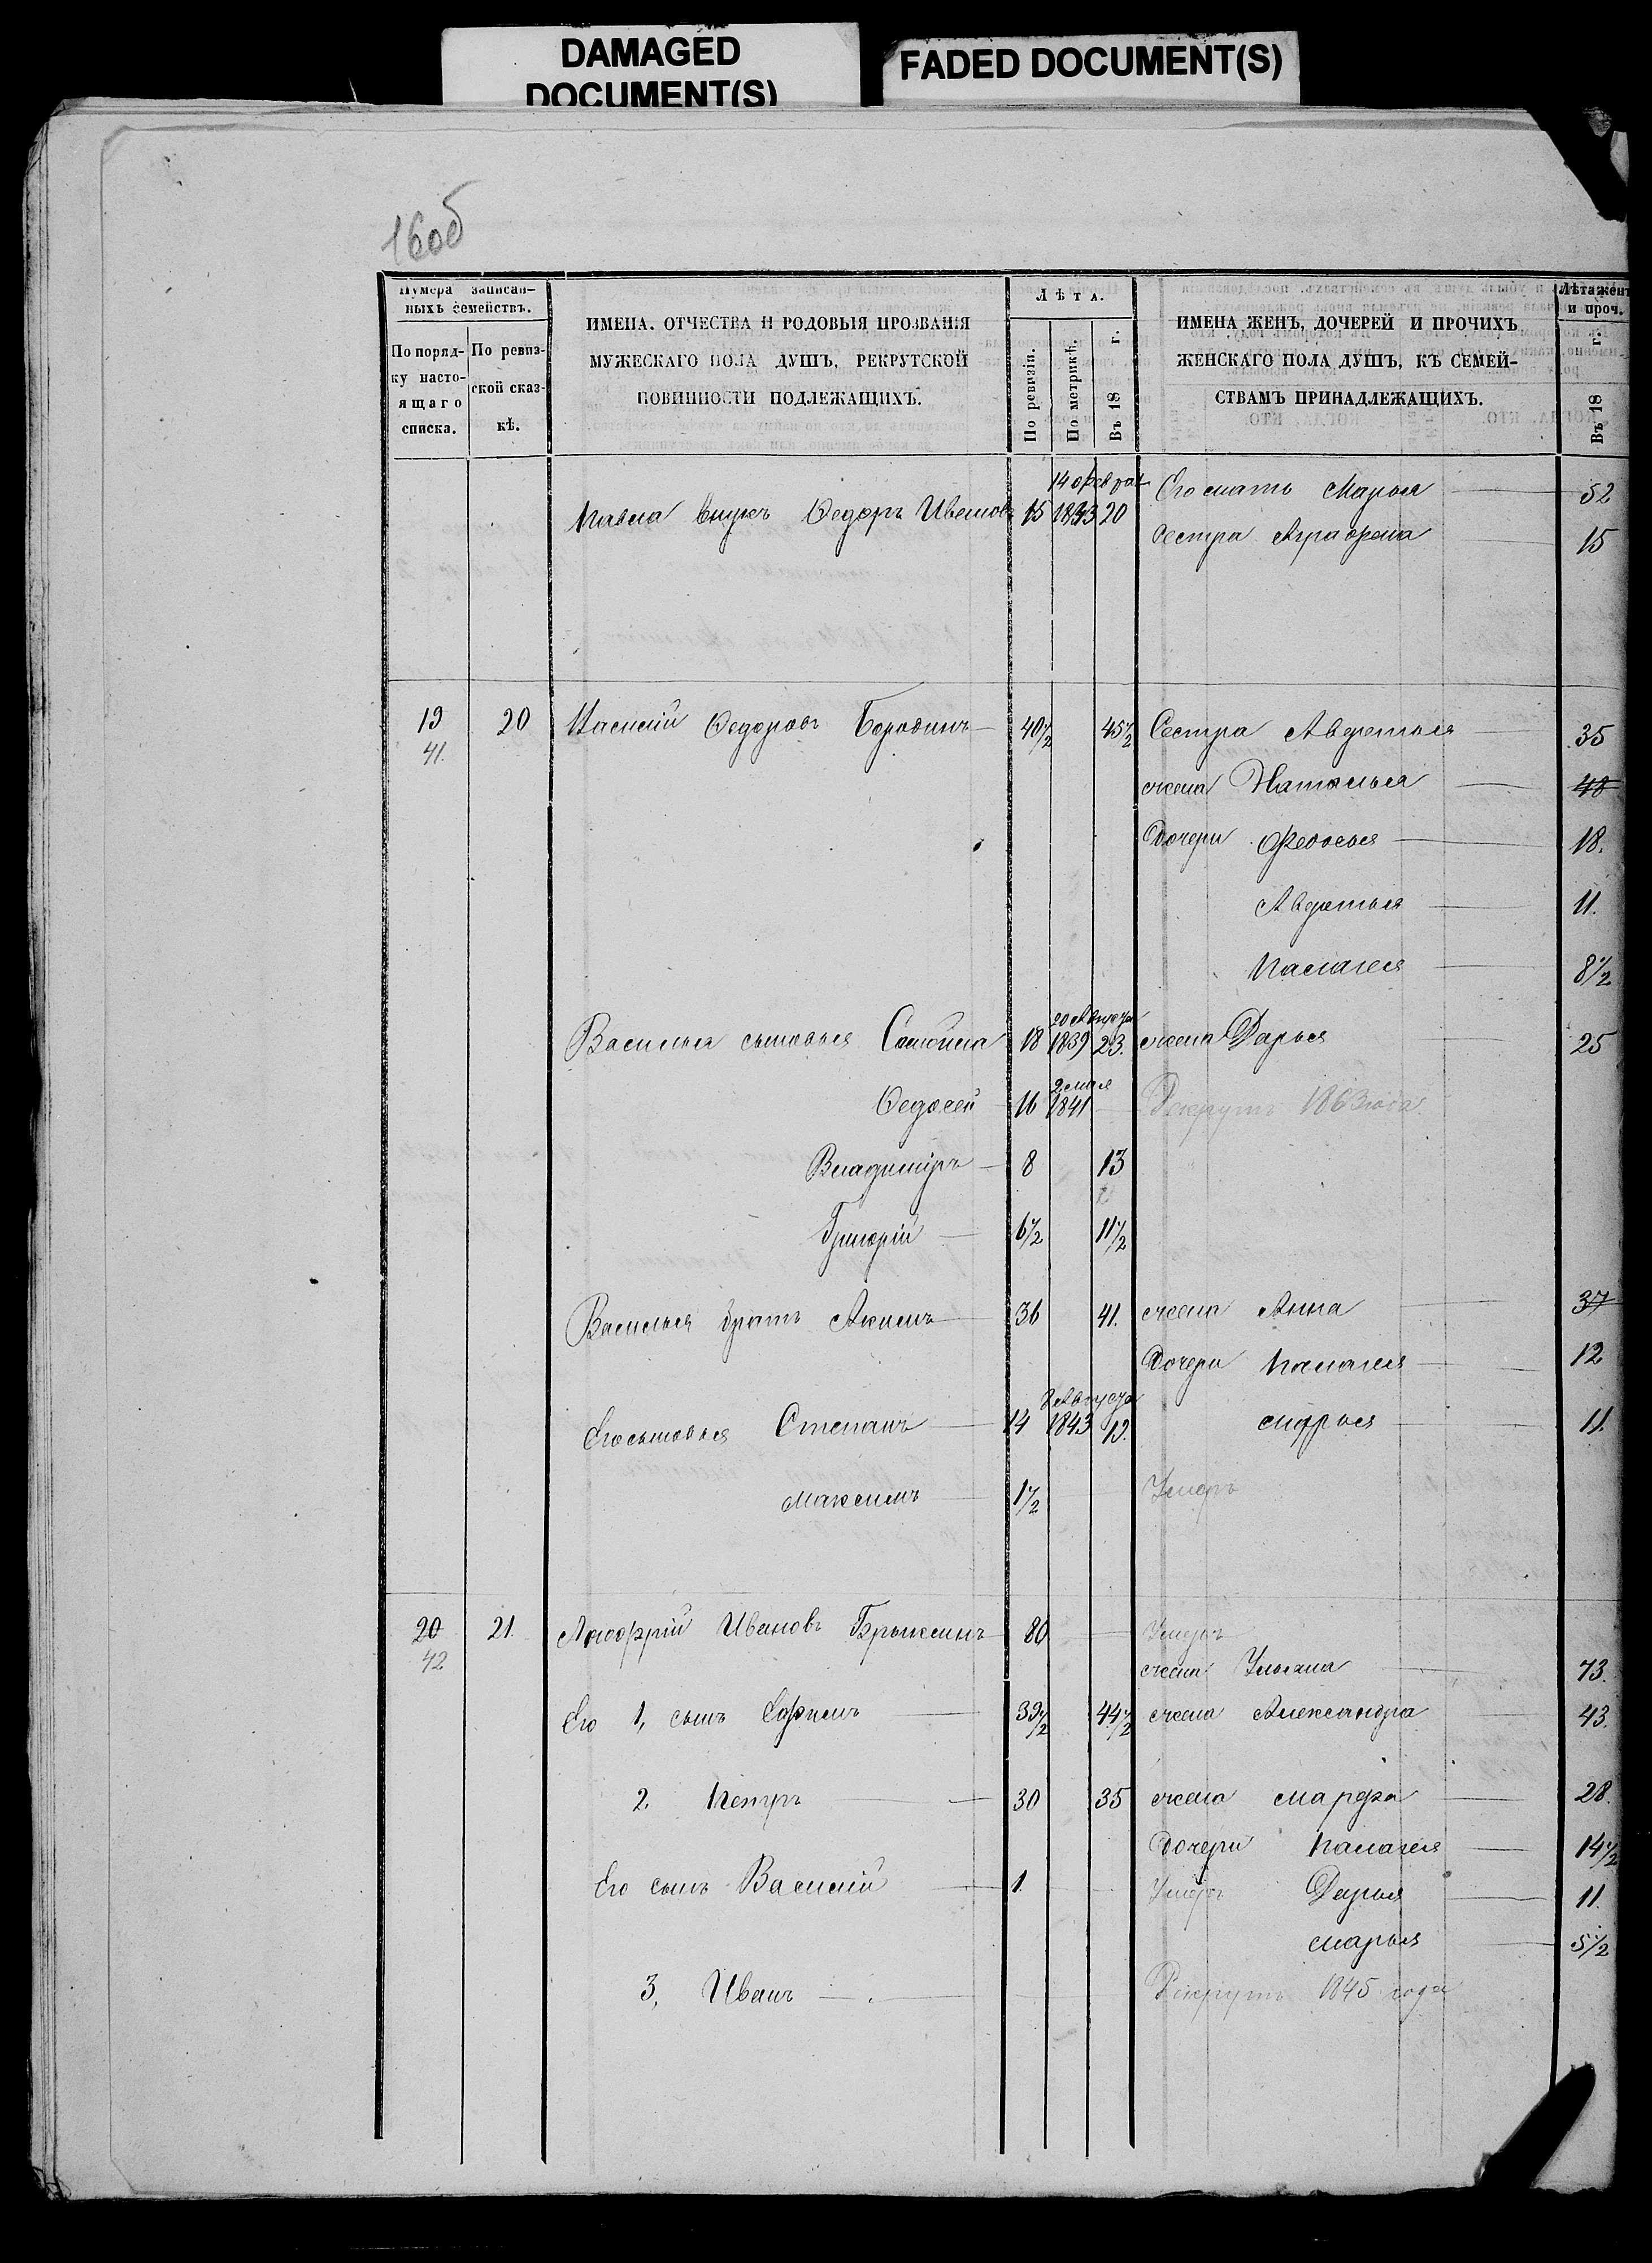 DAMAGED
DOCUMENT(S)
FADED DOCUMENT(S)
16об
Нумера записан-
ныхъ семействъ.
По поряд-
ку насто-
ящаго
списка.
По ревиз-
ской сказ-
кѣ.
ИМЕНА, ОТЧЕСТВА И РОДОВЫЯ ПРОЗВАНІЯ
МУЖЕСКАГО ПОЛА ДУШЪ, РЕКРУТСКОЙ
ПОВИННОСТИ ПОДЛЕЖАЩИХЪ.
Лѣта.
По ревизіи.
По метрикѣ.
Въ 18 г.
ИМЕНА ЖЕНЪ, ДОЧЕРЕЙ И ПРОЧИХЪ
ЖЕНСКАГО ПОЛА ДУШЪ, КЪ СЕМЕЙ-
СТВАМЪ ПРИНАДЛЕЖАЩИХЪ.
Лѣта жен
и проч.
Въ 18 г.
14 феврал Его мать Марья 52
Павла внукъ Ѳедоръ Ивановъ 15 1843 20
Сестра Аграфена 15
19 20 Василій Ѳедоровъ Бородинъ 40½ 45½ Сестра Авдотья 35
41.
жена Наталья 48
Дочери Федосья 18.
Авдотья 11.
Палагея 8½
20 Августа
Василья сыновья 18 1839 23. жена Дарья 25
2 мая
Ѳедосей 16 1841 Рекрутъ 1863 года
Владиміръ 8 13
Григорій 6½ 11½
Василья братъ Акимъ 36 41. жена Анна 37
Дочери Палагея 12
8 Августа
Его сыновья Степанъ 14 1843 19. Марья 11.
Максимъ 1½ Умеръ
20 21. Ивановъ 80 Умеръ
42
жена Ульяна 73.
Его 1, сынъ Ефимъ 39½ 44½ жена Александра 43.
2. Петръ 30 35 жена Марфа 28.
Дочери Палагея 14½
Его сынъ Василій 1. Умеръ Дарья 11.
Марья 5½
3, Иванъ Рекрутъ 1845 года